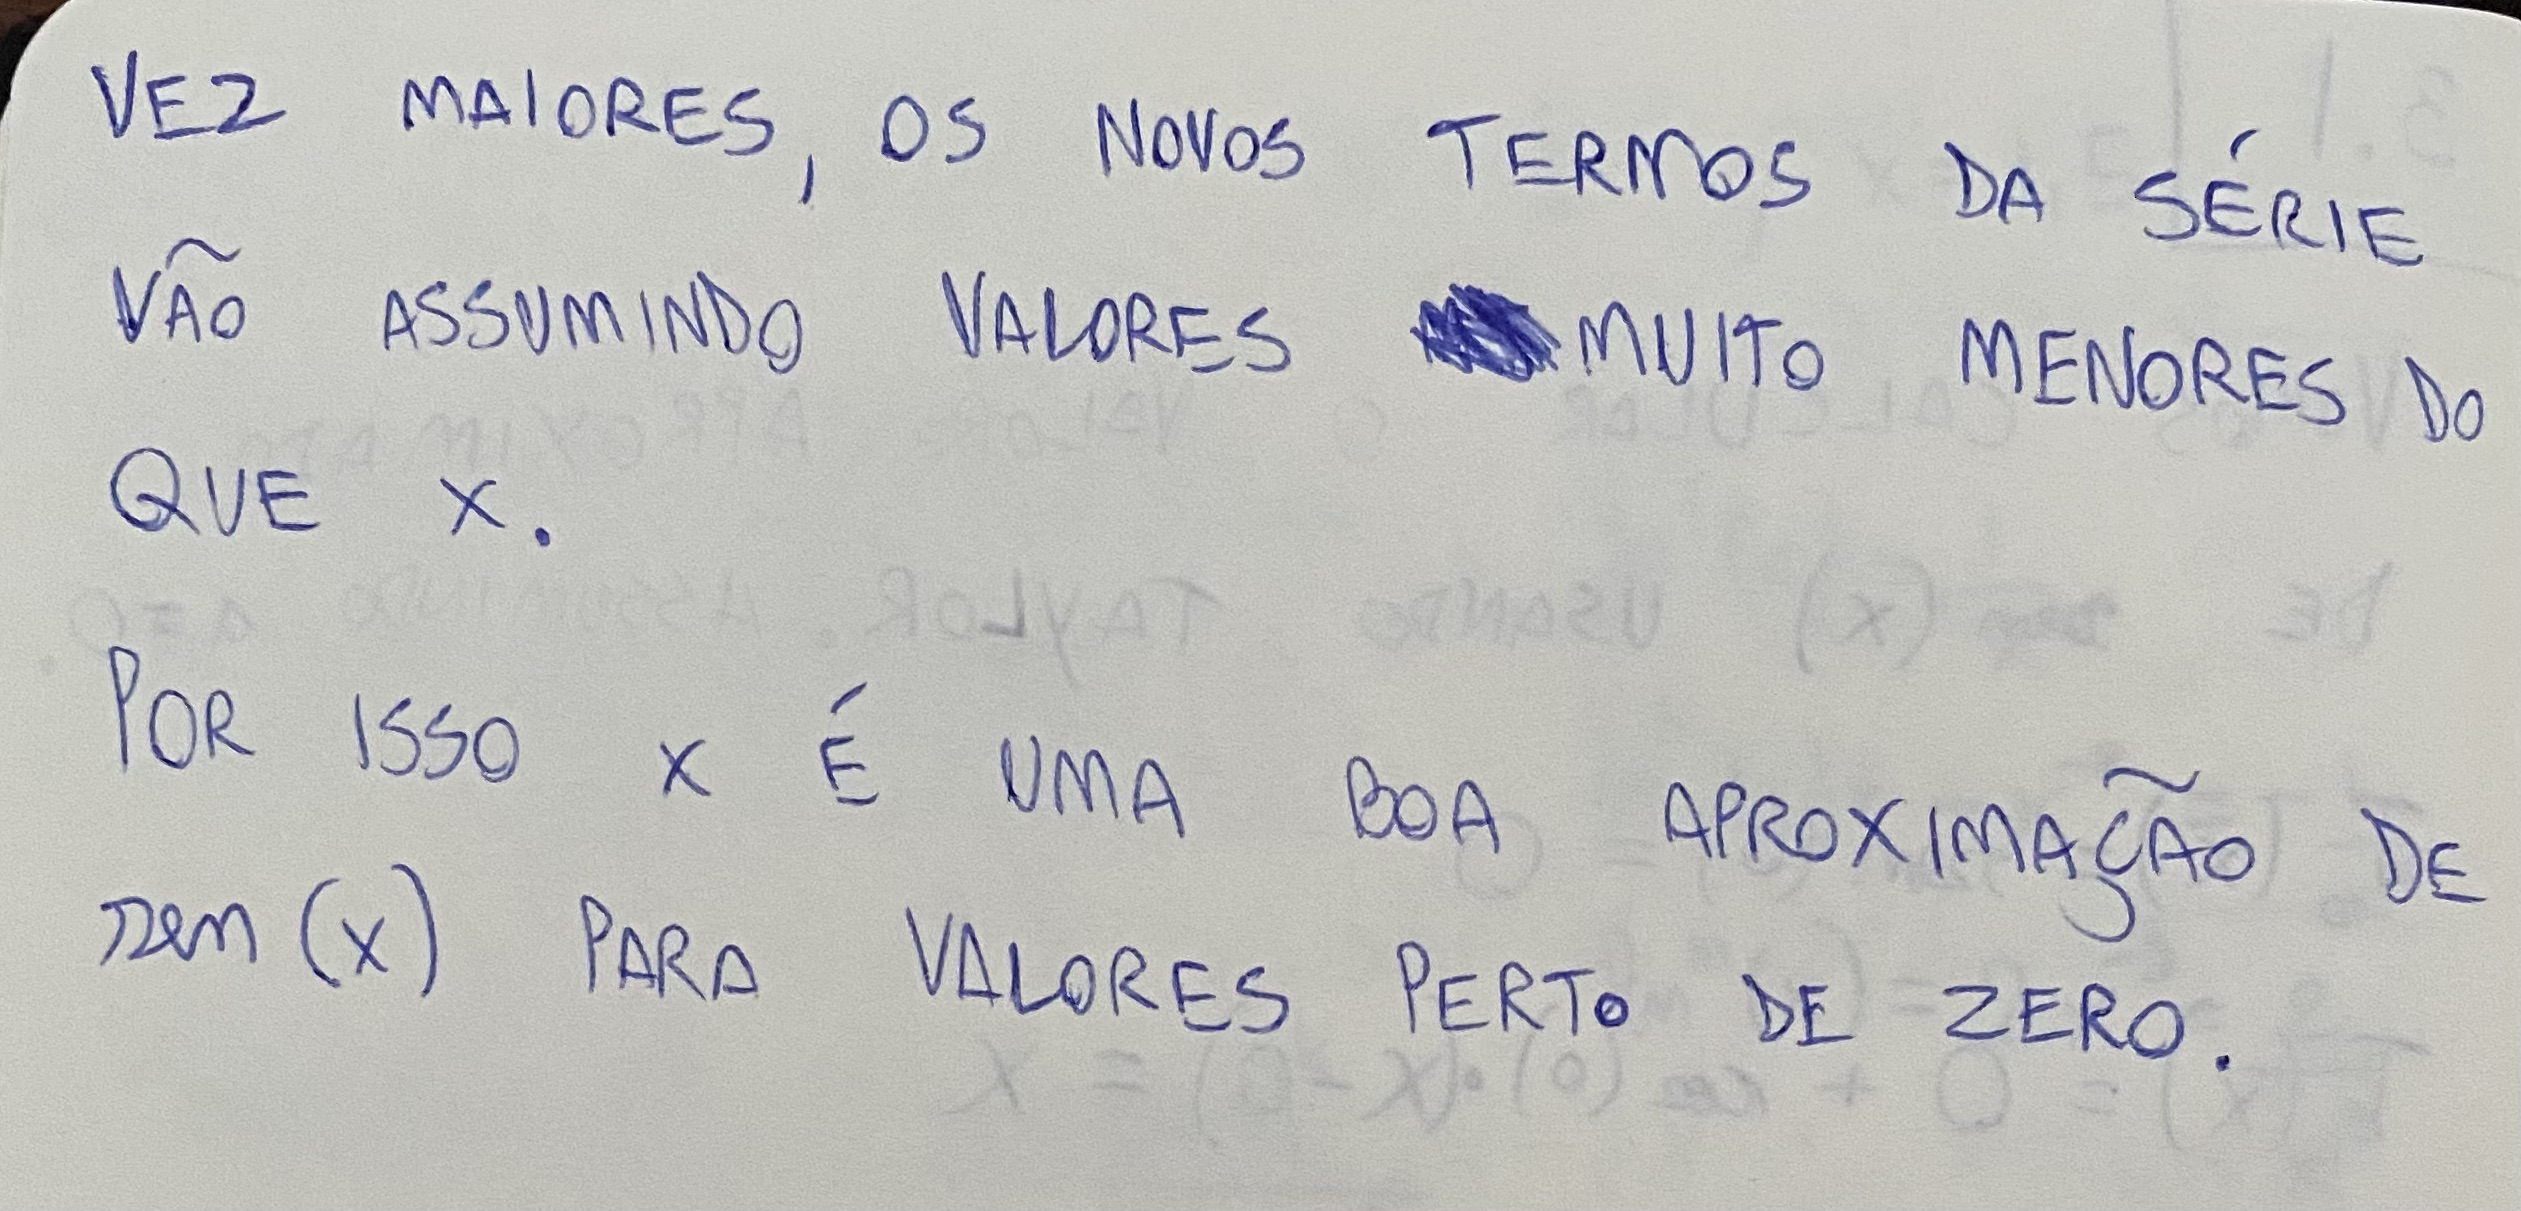 VEZ MAIORES, OS NOVOS TERMOS DA SÉRIE
VÃO ASSUMINDO VALORES MUITO MENORES DO
QUE X.
POR ISSO X É UMA BOA APROXIMAÇÃO DE
sen(x) PARA VALORES PERTO DE ZERO.